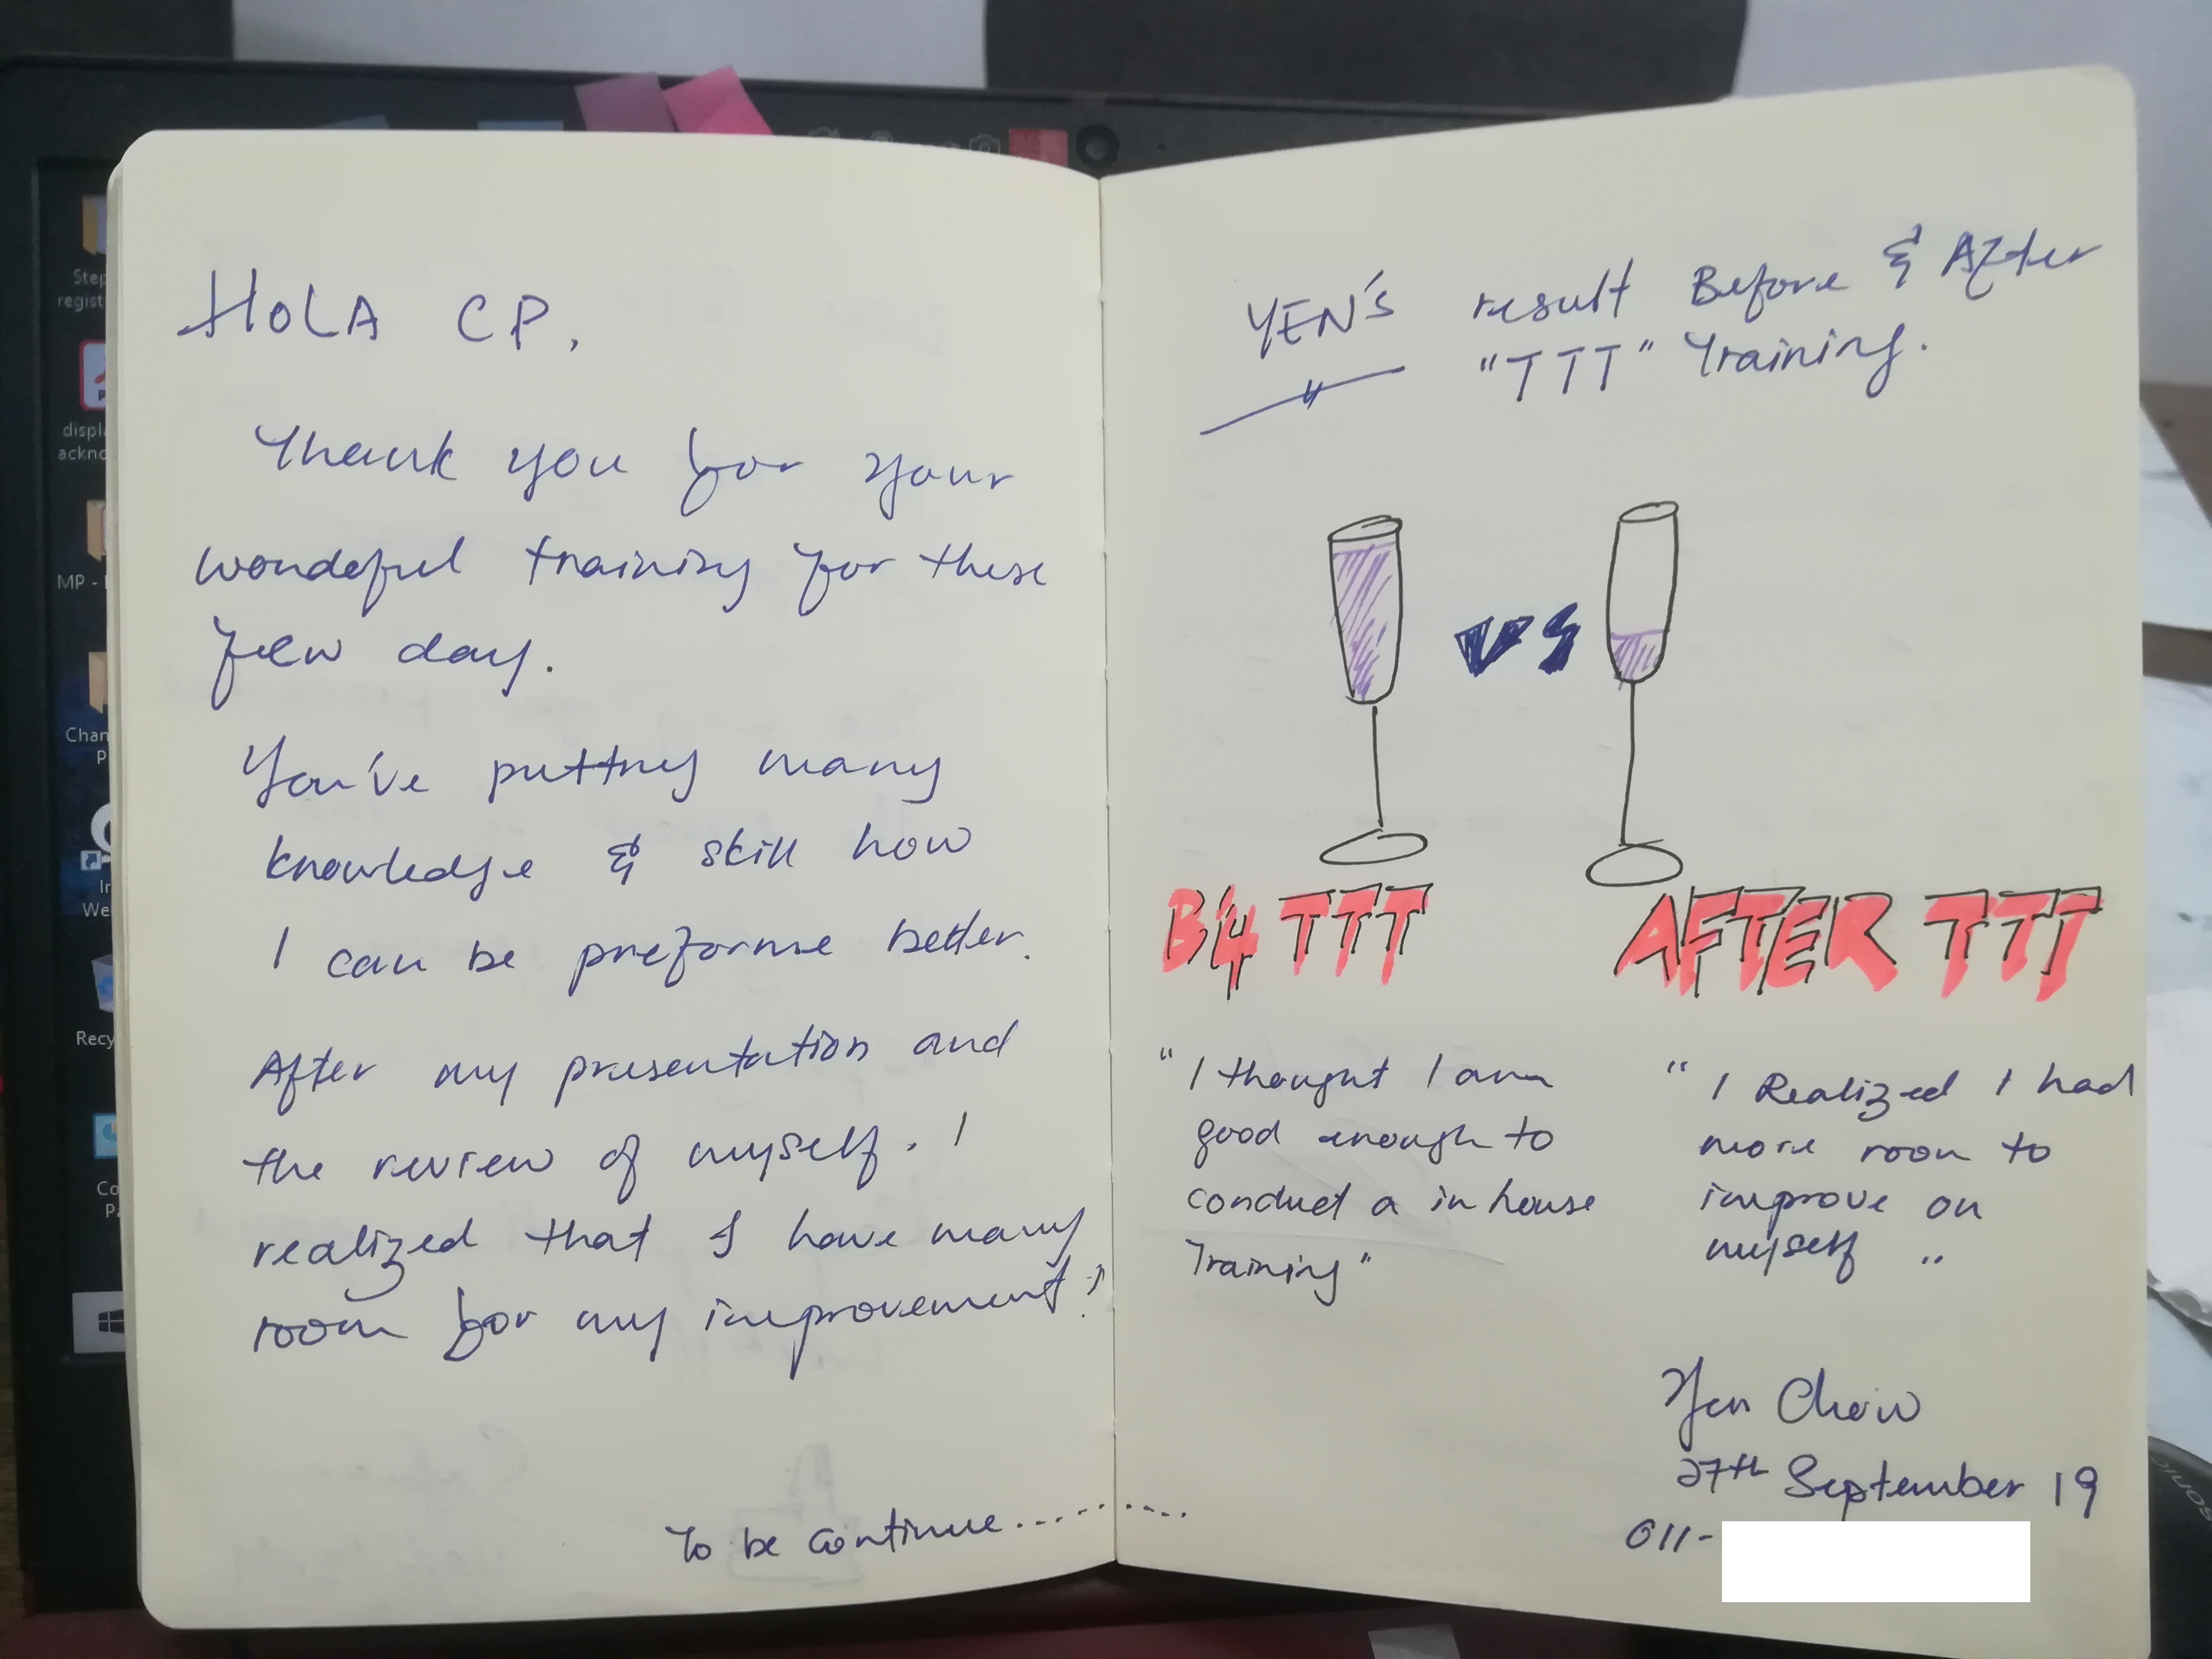 HOLA CP,
Thank you for your
wondeful training for these
few day.
You've puttng many
knowledge & skill how
I can be preforme better.
After my presentation and
the review of myself. I
realized that I have many
room for my improvement!
To be continue..........
YEN'S result Before & After
"TTT" Training.
VS
B4 TTT
AFTER TTT
"I thought I am
good enough to
conduct a in house
Training"
"I Realized I had
more room to
improve on
myself"
Yen Chew
27th September 19
011-
Step
regist
displ
ackno
MP -
Chan
P
In
We
Recy
Co
P